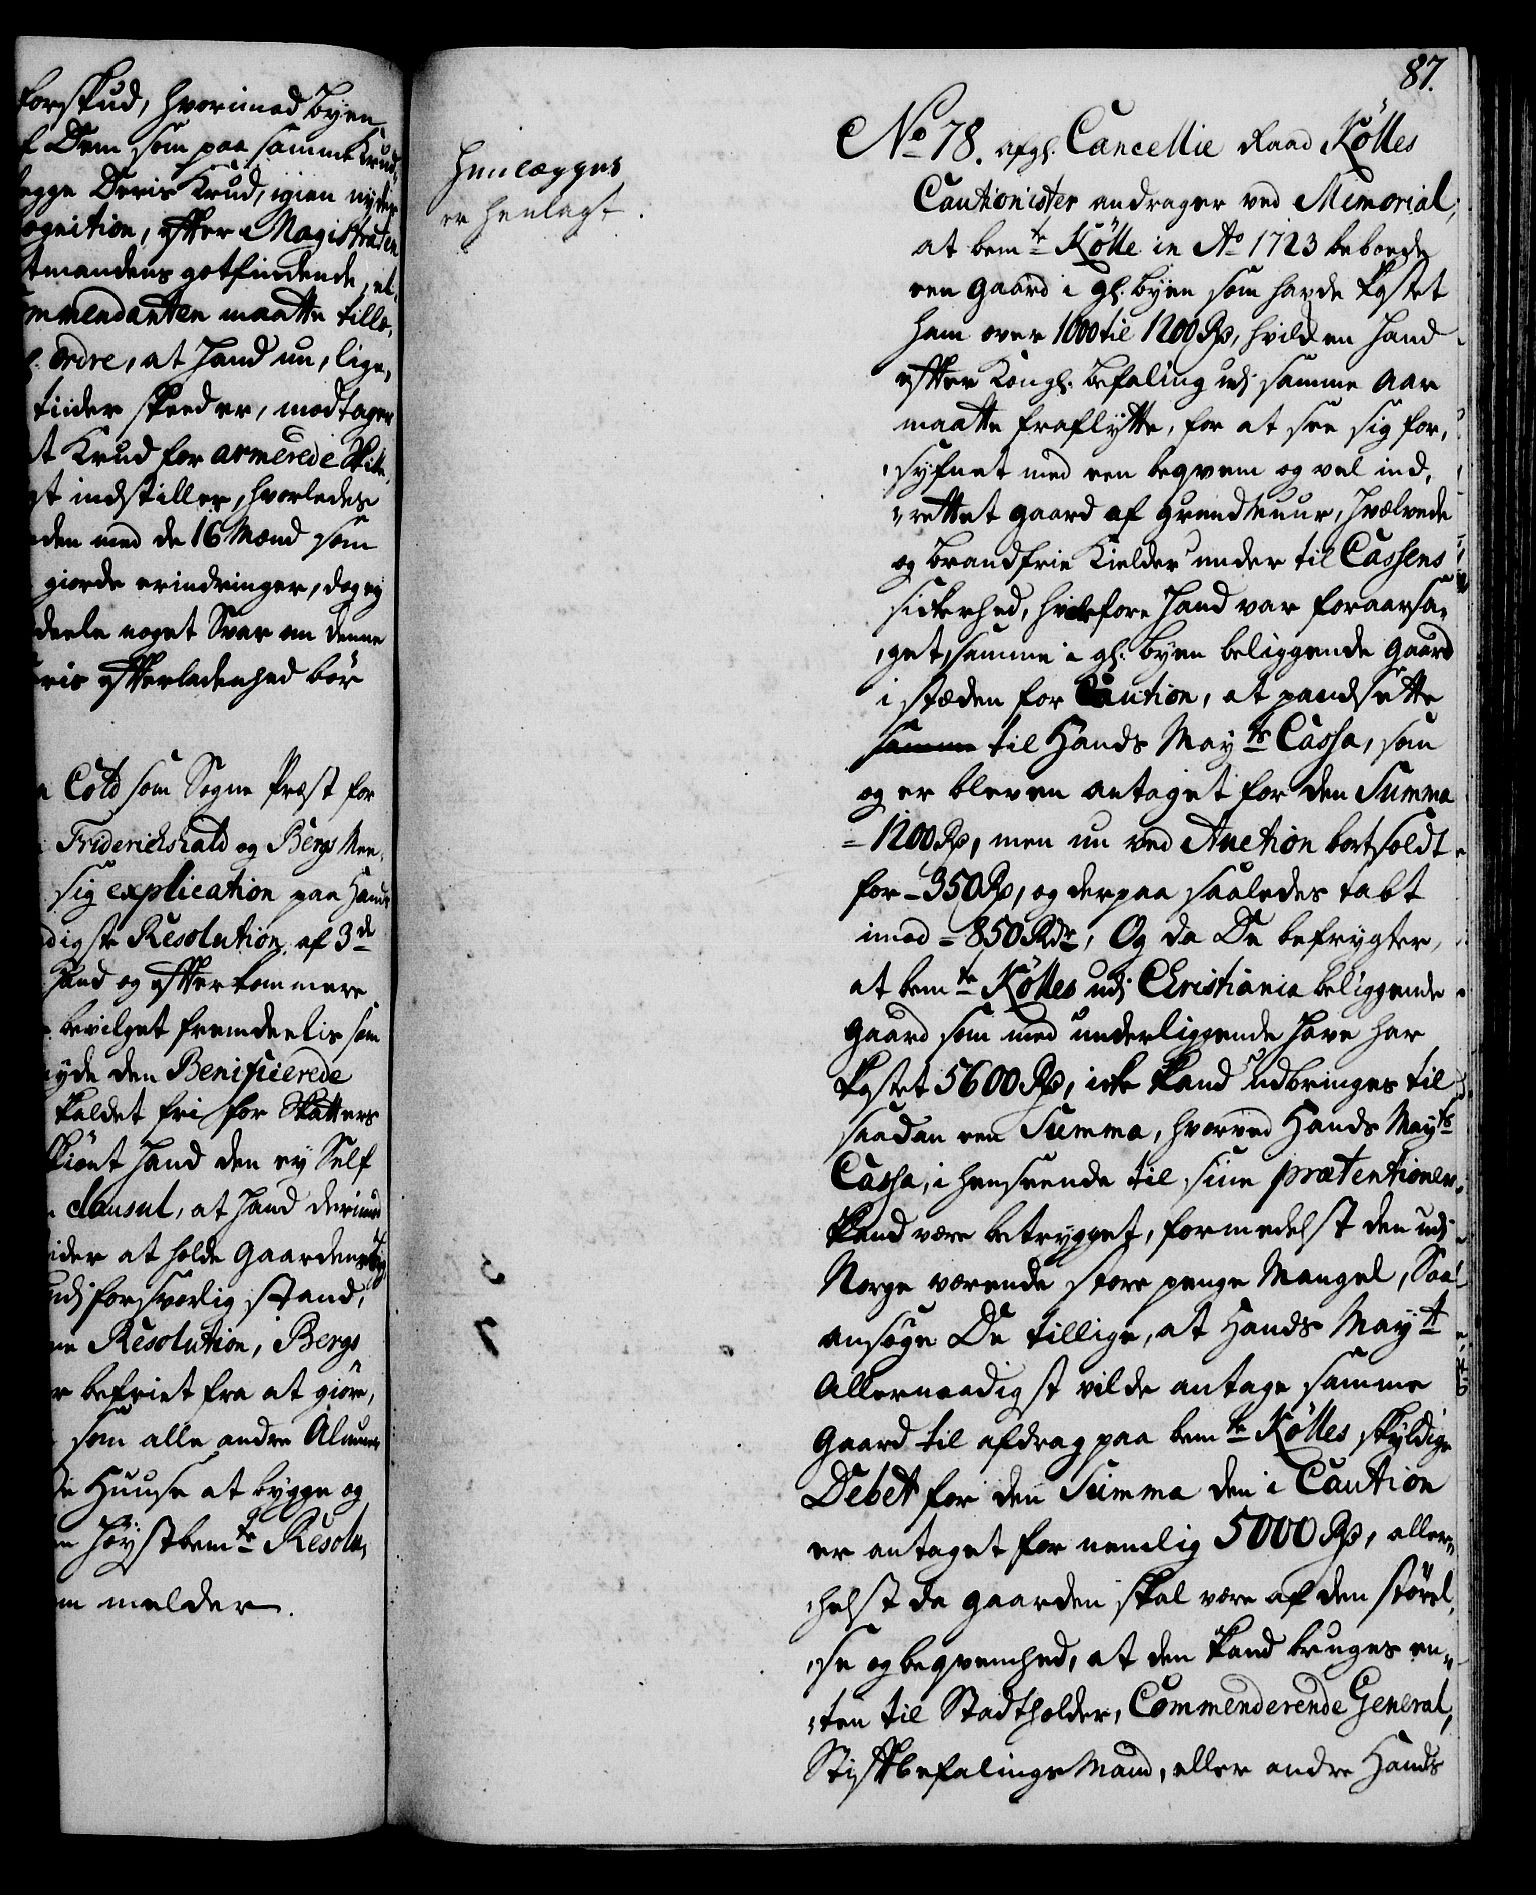 forskud, hvorimod Byen
Dem som paa samme Krud
egge Deris Krud, igien nyder
ognition, efter Magistraten
tmandens gotfindende, et
mmendanten maatte tille,
ordre, at hand nu, lige,
tinder skeed er, modtager
t Krud for armerede Skibe
t indstiller, hvorledes
den med de 16 Mænd som
giorde erindringer, dog ej
deele noget Svar om denne
ris efterladenhed bör
Cold som Sogne Præst for
Friderichshald og Bergs Men,
sig explication paa Hands
digste Resolution af 3de
hand og efterkommere
bevilget fremdeelis som
nyde den Benificerede
kaldet fri for Skatters
skiönt hand den ey Self
Clausul, at hand derimod
ider at holde Gaardens
udj forsvarlig stand,
ne Resolution, Bergs
r befriet fra at giöre,
som alle andre Almue
de Huuse at bygge og
n höystbemte Resolu,
m melder.
87.
Henlægges
er henlagt.
No 78. afgl. Cancellie Raad Kölles
Cautionister andrager ved Memorial,
at bemte Kölle in Ao 1723 beboede
een Gaard i gl. byen som hafde kostet
ham over 1000 til 1200 Rd, hvilken hand
efter Kongl. befaling udj samme Aar
maatte fraflytte, for at see sig for,
,syfnet med een beqvem og vel ind,
,rettet gaard af grundmuur, hvælvede
og brandfrie Kielder under til Cassens
sickerhed, hvorfore hand var foraarsa,
,get, samme i gl. byen beliggende Gaard
i stæden for Caution, at pandsætte
samme til Hands Mayts Cassa, som
og er bleven antaget for den Summa
- 1200 Rd, men nu ved Auction bortsoldt
for - 350 Rd, og derpaa saaledes tabt
imod - 850 Rdr, Og da De befrygter,
at bemte Kölles udj Christiania beliggende
Gaard som med underliggende Have har
kostet 5600 Rd, icke kand udbringes til
saadan een Summa, hvorved Hands Mayts
Cassa, i henseende til sine prætentioner
kand være betrygget, formedelst den udj
Norge værende store penge Mangel, Saa
ansöge De tillige, at Hands Mayt
Allernaadigst vilde antage samme
Gaard til afdrag paa bemte Kölles skyldige
Debet for den Summa den i Caution
er antaget for nemlig 5000 Rd, aller,
,helst da gaarden skal være af den störel,
,se og beqvemhed, at den kand bruges en,
,ten til Stadtholder, Commenderende General,
Stiftbefalings Mand, eller andre Hands